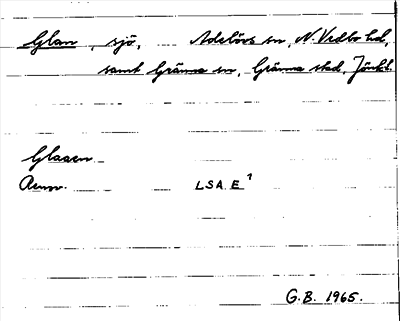 Glan, sjö, Adelövs sn, N. Vedbo hd,
samt Gränna sn, Gränna stad, Jönk l.
Glaaen
Renov. LSA E 1
G.B. 1965.